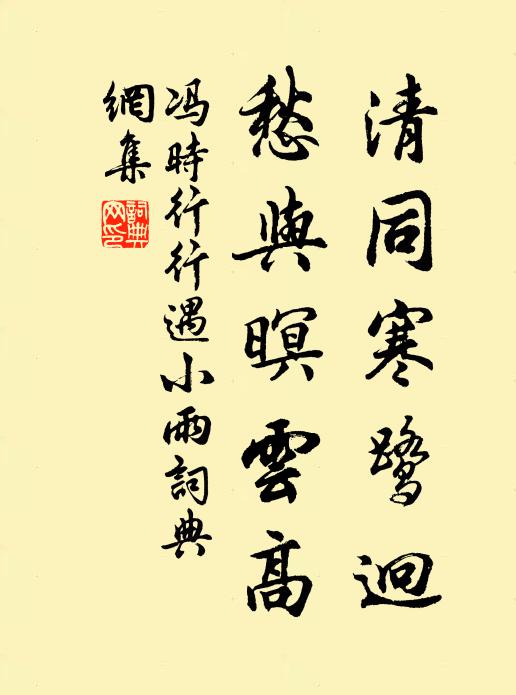 清同寒鷺迥
愁與暝雲高
馮時行行遇小雨詞典
網集
詞典網印